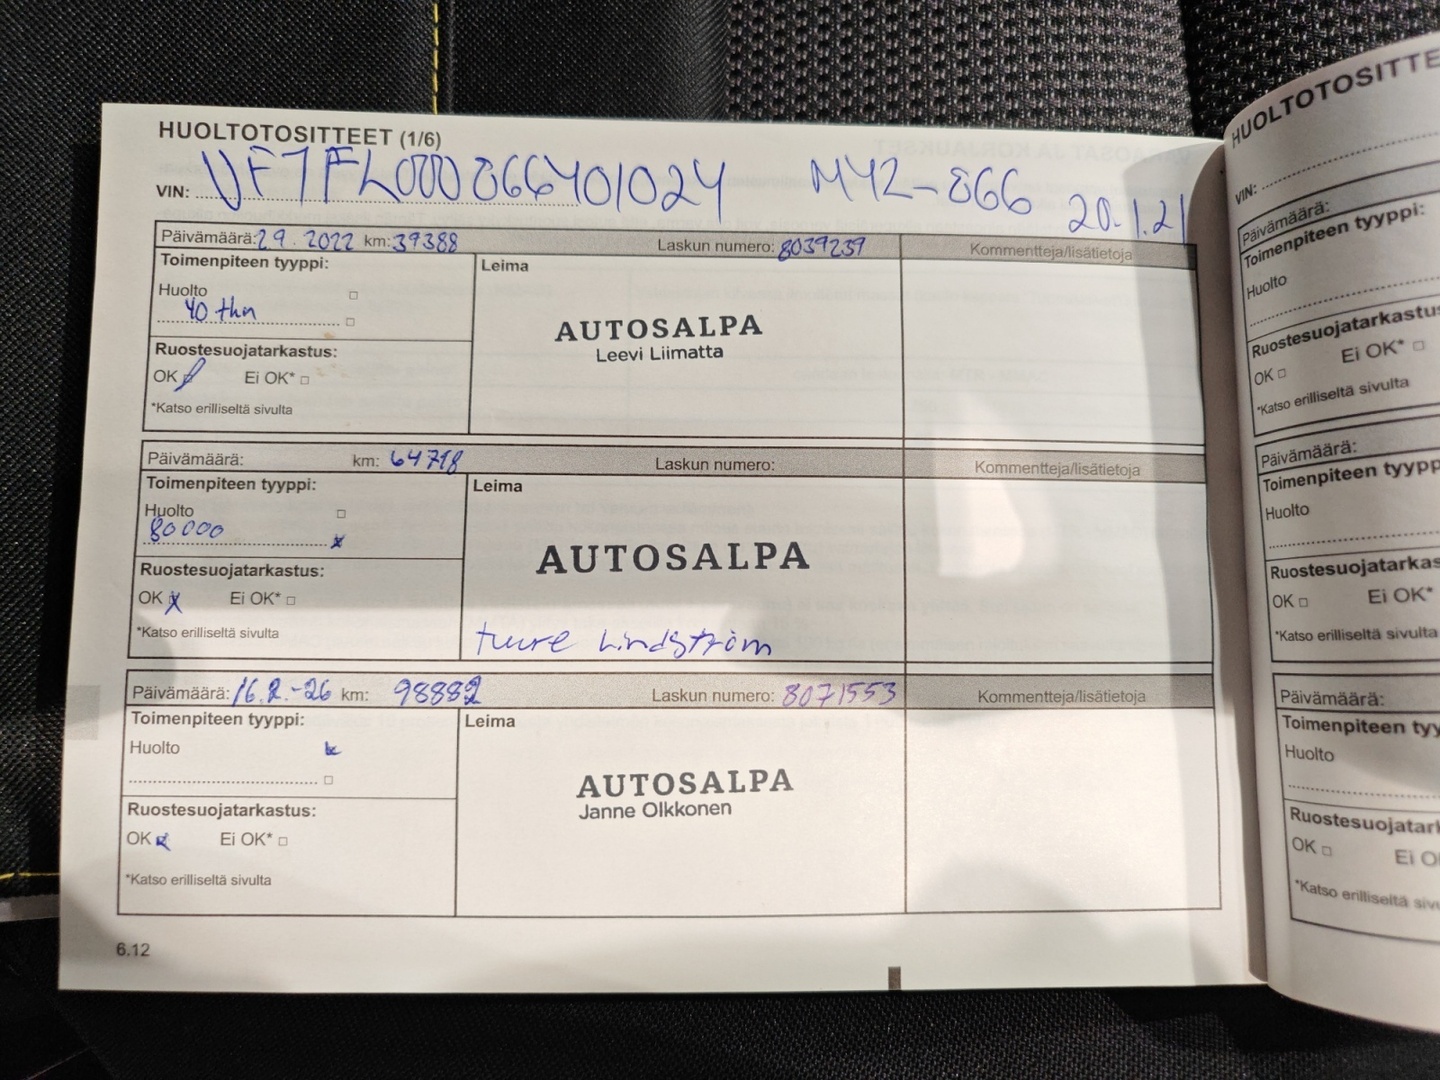 HUOLTOTOSITTEET (1/6)
VIN: VF7FL000066401024 MYZ-866 20.1.21
Päivämäärä: 2.9.2022 km: 39388 Laskun numero: 8039239 Kommentteja/lisätietoja
Toimenpiteen tyyppi: Leima
Huolto
40 thn
AUTOSALPA
Leevi Liimatta
Ruostesuojatarkastus:
OK Ei OK*
*Katso erilliseltä sivulta
Päivämäärä: km: 64718 Laskun numero: Kommentteja/lisätietoja
Toimenpiteen tyyppi: Leima
Huolto
80000
AUTOSALPA
Ruostesuojatarkastus:
OK x Ei OK*
*Katso erilliseltä sivulta
tuure Lindström
Päivämäärä: 16.2.-26 km: 98882 Laskun numero: 8071553 Kommentteja/lisätietoja
Toimenpiteen tyyppi: Leima
Huolto x
AUTOSALPA
Janne Olkkonen
Ruostesuojatarkastus:
OK x Ei OK*
*Katso erilliseltä sivulta
6.12
HUOLTOTOSITTE
VIN:
Päivämäärä:
Toimenpiteen tyyppi:
Huolto
Ruostesuojatarkastus
OK Ei OK*
*Katso erilliseltä sivulta
Päivämäärä:
Toimenpiteen tyypp
Huolto
Ruostesuojatarkas
OK Ei OK*
*Katso erilliseltä sivulta
Päivämäärä:
Toimenpiteen tyy
Huolto
Ruostesuojatark
OK Ei O
*Katso erilliseltä sivu